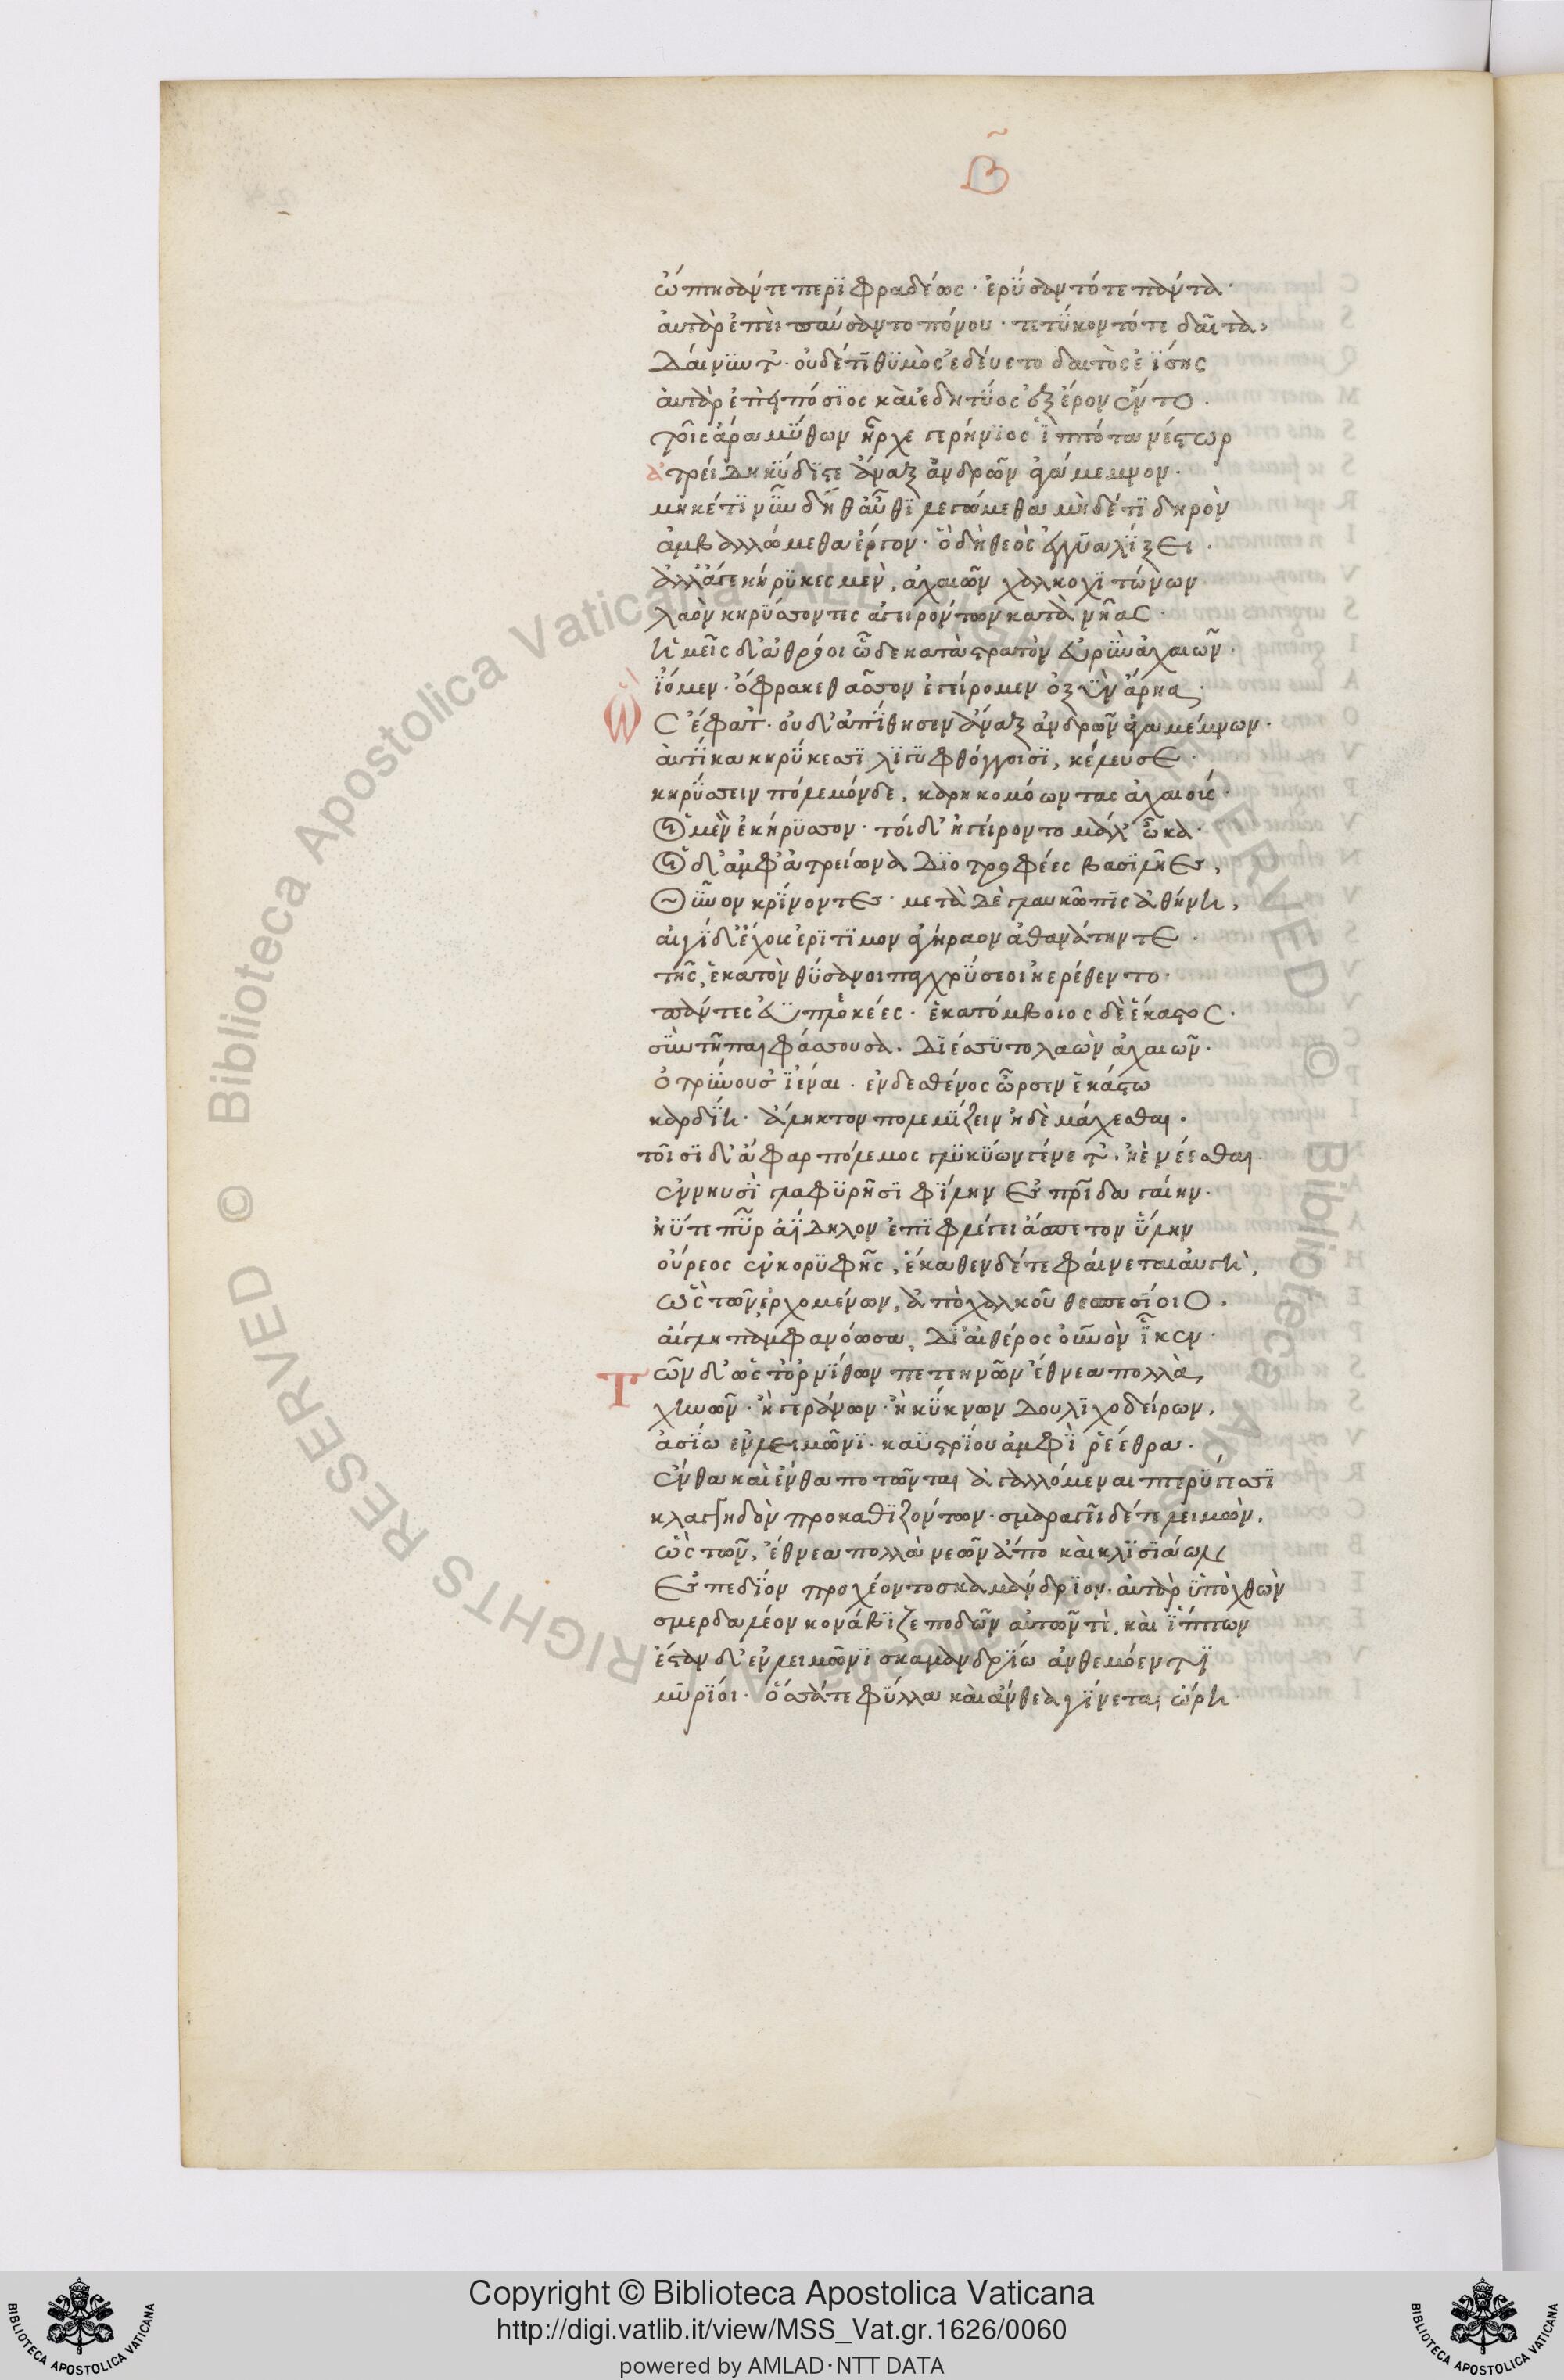 Β
ὤπτησάν τε περιφραδέως· ἐρύσαντό τε πάντα·
ἀυτὰρ ἐπεὶ παύσαντο πόνου· τετύκοντό τε δαῖτα,
Δαίνυντ'· οὐδέ τι θυμὸς ἐδέυετο δαιτὸς ἐΐσης
ἀυτὰρ ἐπεὶ πόσιος καὶ ἐδητύος ἐξ ἔρον ἕντο·
τοῖς ἄρα μύθων ἦρχε γερήνιος ἱππότα νέστωρ
ἀτρείδη κύδιστε ἄναξ ἀνδρῶν ἀγάμεμνον·
μηκέτι νῦν δὴθ' αὖθι λεγώμεθα μὴδέτι δηρὸν
ἀμβαλλώμεθα ἔργον· ὃ δὴ θεὸς ἐγγυαλίξει·
ἀλλ' ἄγε κήρυκες μὲν, ἀχαιῶν χαλκοχιτώνων
λαὸν κηρύσσοντες ἀγειρόντων κατὰ νῆας·
ἡμεῖς δ' ἀθρόοι ὧδε κατὰ στρατὸν ἐυρὺν ἀχαιῶν·
ἴομεν· ὄφρα κε θᾶσσον ἐγείρομεν ὀξὺν ἄρηα·
Ὣς ἔφατ'· οὐδ' ἀπίθησεν ἄναξ ἀνδρῶν ἀγαμέμνων·
ἀυτίκα κηρύκεσσι λιγυφθόγγοισι, κέλευσε·
κηρύσσειν πόλεμόνδε, καρηκομόωντας ἀχαιούς·
Οἱ μὲν ἐκήρυσσον· τοὶ δ' ἠγείροντο μάλ' ὦκα·
Οἱ δ' ἀμφ' ἀτρείωνα Διοτρεφέες βασιλῆες,
Θῦνον κρίνοντες· μετὰ Δὲ γλαυκῶπις ἀθήνη,
αἰγίδ' ἔχουσ' ἐρίτιμον ἀγήραον ἀθανάτην τε·
τῆς, ἑκατὸν θύσανοι παγχρύσεοι ἠερέθεντο·
πάντες ἐϋπλεκέες· ἑκατόμβοιος δὲ ἕκαστος·
σὺν τῆ παιφάσσουσα· Διέσσυτο λαὸν ἀχαιῶν·
ὀτρύνουσ' ἰέναι· ἐν δε σθένος ὦρσεν ἑκάστω
καρδίη· ἄληκτον πολεμίζειν ἠδὲ μάχεσθαι·
τοῖσι δ' ἄφαρ πόλεμος γλυκύων γένετ'· ἠὲ νέεσθαι·
ἐν νηυσὶ γλαφυρῆσι φίλην ἐς πρίδα γαίην·
ἠΰτε πῦρ ἀΐδηλον ἐπιφλέγει ἄσπετον ὕλην
οὔρεος ἐν κορυφῆς, ἕκαθεν δέ τε φαίνεται ἀυγὴ,
ὣς τῶν ἐρχομένων, ἀπὸ χαλκοῦ θεσπεσίοιο·
ἄιγλη παμφανόωσα, Δι' αἰθέρος οὐνὸν ἷκεν·
Τῶν δ' ὥς τ' ὀρνίθων πετεηνῶν ἔθνεα πολλὰ,
χηνῶν· ἢ γεράνων· ἢ κύκνων Δουλιχοδείρων,
ἀσίω ἐν λειμῶνι· καϋστρίου ἀμφὶ ῥέεθρα·
ἔνθα καὶ ἔνθα ποτῶνται ἀγαλλόμεναι πτερύγεσσι
κλαγγηδὸν προκαθιζόντων· σμαραγεῖ δέ τε λειμὼν,
ὣς τῶν, ἔθνεα πολλὰ νεῶν ἄπο καὶ κλισιάων
ἐς πεδίον προχέοντο σκαμάνδριον· ἀυτὰρ ὑπὸ χθὼν
σμερδαλέον κονάβιζε ποδῶν αὐτῶν τὲ, καὶ ἵππων
ἔσταν δ' ἐν λειμῶνι σκαμανδρίω ἀνθεμόεντι
μυρίοι· ὅσσά τε φύλλα καὶ ἄνθεα γίνεται ὥρη·
© Biblioteca Apostolica Vaticana ALL RIGHTS RESERVED
© Biblioteca Apostolica Vaticana ALL RIGHTS RESERVED
Copyright © Biblioteca Apostolica Vaticana
http://digi.vatlib.it/view/MSS_Vat.gr.1626/0060
powered by AMLAD·NTT DATA
BIBLIOTECA APOSTOLICA VATICANA
BIBLIOTECA APOSTOLICA VATICANA